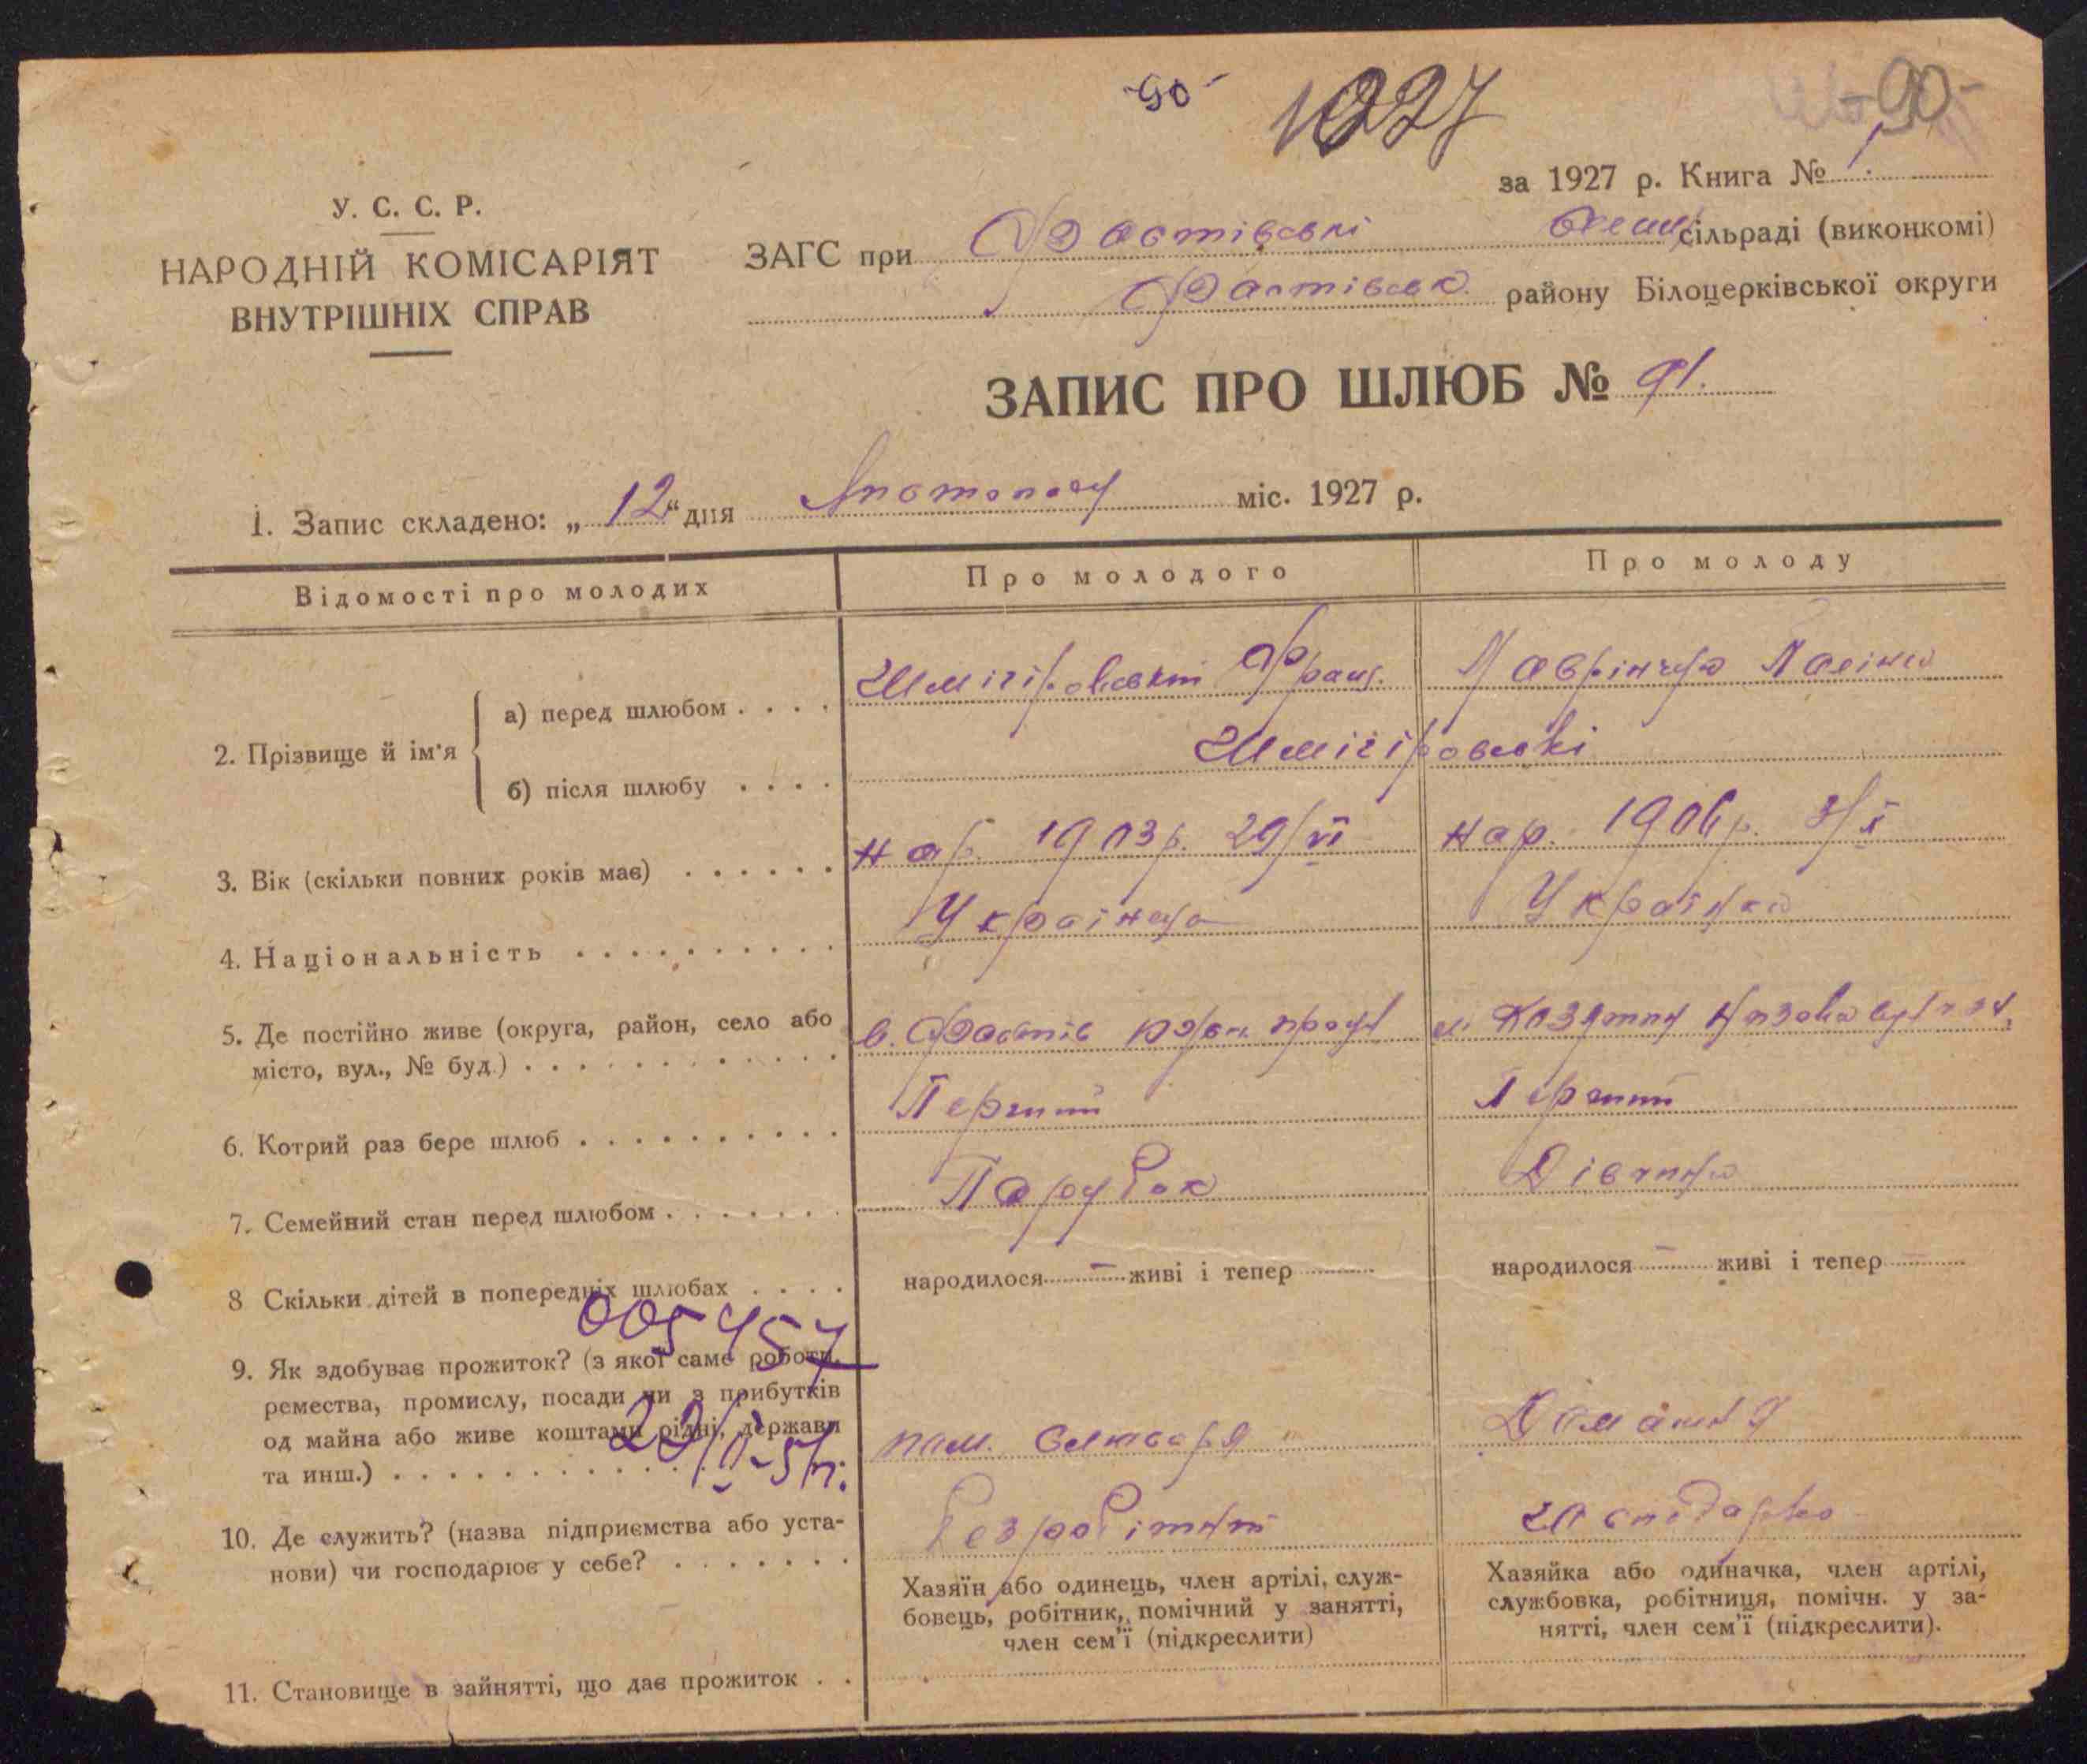 -90-
1927
-90-
за 1927 р. Книга № 1.
У. С. С. Р.
НАРОДНІЙ КОМІСАРІЯТ
ВНУТРІШНІХ СПРАВ
ЗАГС при Фастівські сільраді (виконкомі)
Фастівськ. району Білоцерківської округи
ЗАПИС ПРО ШЛЮБ № 91.
1. Запис складено: „ 12 “ дня Листопаду міс. 1927 р.
Відомості про молодих
Про молодого
Про молоду
2. Прізвище й ім'я
а) перед шлюбом . . . .
Шмігіровський Франц.
Лаврінчук
б) після шлюбу . . . .
Шмігіровські
3. Вік (скільки повних років має) . . . . . .
нар. 1903 р. 29/VI
нар. 1906 р. 3/X
4. Національність . . . . . . . . . .
Українець
Українка
5. Де постійно живе (округа, район, село або
місто, вул., № буд.) . . . . . . . . . . .
Фастів
м. Козятин
6. Котрий раз бере шлюб . . . . . . . . . .
Перший
Перший
7. Семейний стан перед шлюбом . . . . . . .
Парубок
Дівчина
8 Скільки дітей в попередніх шлюбах . . . .
народилося — живі і тепер
народилося — живі і тепер —
005457
9. Як здобуває прожиток? (з якої саме роботи,
ремества, промислу, посади чи з прибутків
од майна або живе коштами рідні, держави
та инш.) . . . . . . . . . . .
пом. слюсаря
Домашнє
10. Де служить? (назва підприємства або уста-
нови) чи господарює у себе? . . . . . . .
безробітний
господарство
Хазяїн або одинець, член артілі, служ-
бовець, робітник, помічний у занятті,
член сем'ї (підкреслити)
Хазяйка або одиначка, член артілі,
службовка, робітниця, помічн. у за-
нятті, член сем'ї (підкреслити).
11. Становище в зайнятті, що дає прожиток . .